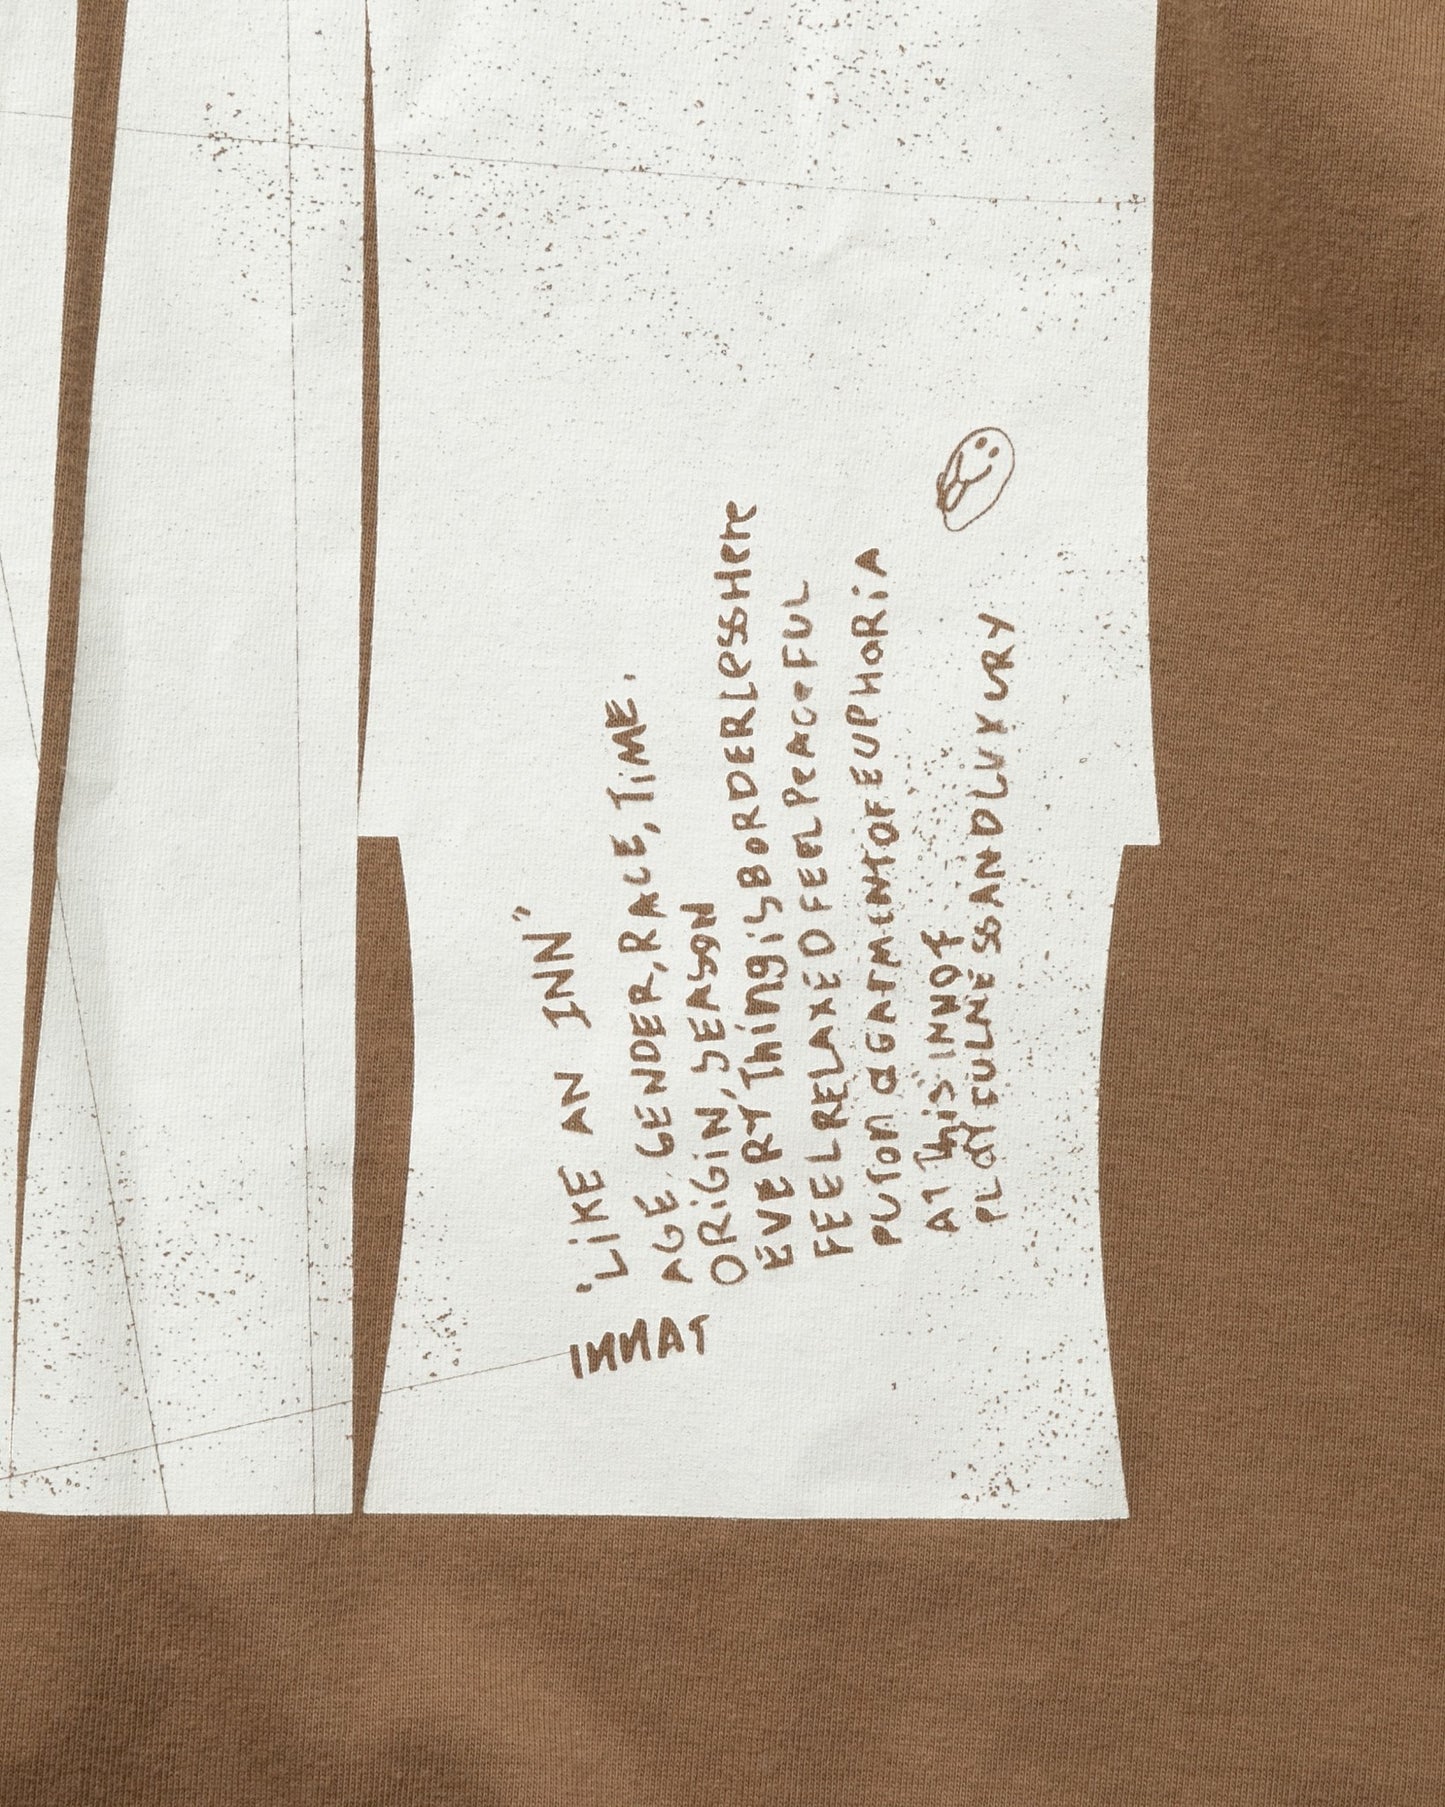 INNAT
"LIKE AN INN"
AGE, GENDER, RACE, TIME.
ORIGIN, SEASON
EVERYThiNgiSBORDERLeSSHere
FEELRELAXEDFEELPEACEFUL
PUTON a GARMENTOFEUPHORiA
AT ThiS INNOF
PLAYFULNESSANDLUXURY